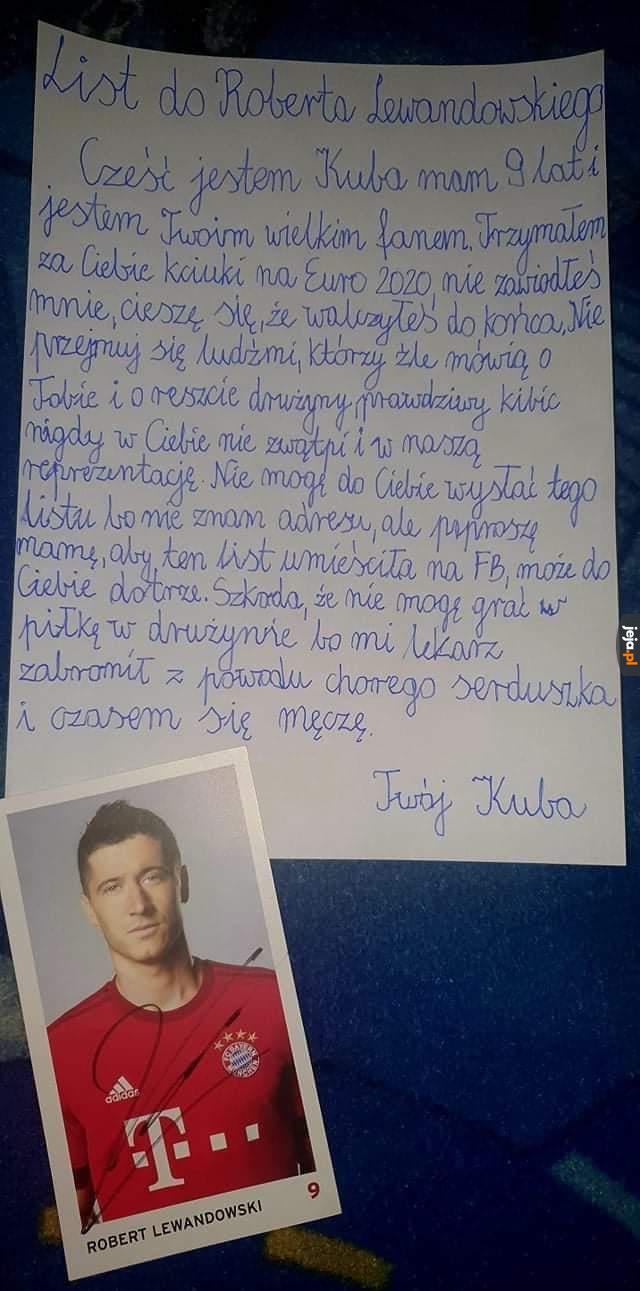 List do Roberta Lewandowskiego
Cześć jestem Kuba mam 9 lat i
jestem Twoim wielkim fanem. Trzymałem
za Ciebie kciuki na Euro 2020, nie zawiodłeś
mnie, cieszę się, że walczyłeś do końca, Nie
przejmuj się ludźmi, którzy źle mówią o
Tobie i o reszcie drużyny, prawdziwy kibic
nigdy w Ciebie nie zwątpi i w naszą
reprezentację. Nie mogę do Ciebie wysłać tego
listu bo nie znam adresu, ale poproszę
mamę, aby, ten list umieściła na FB, może do
Ciebie dotrze. Szkoda, że nie mogę grać w
piłkę w drużynie bo mi lekarz
zabronił z powodu chorego serduszka
i czasem się męczę.
Twój Kuba
jeja.pl
FC BAYERN
MÜNCHEN
adidas
T
ROBERT LEWANDOWSKI 9